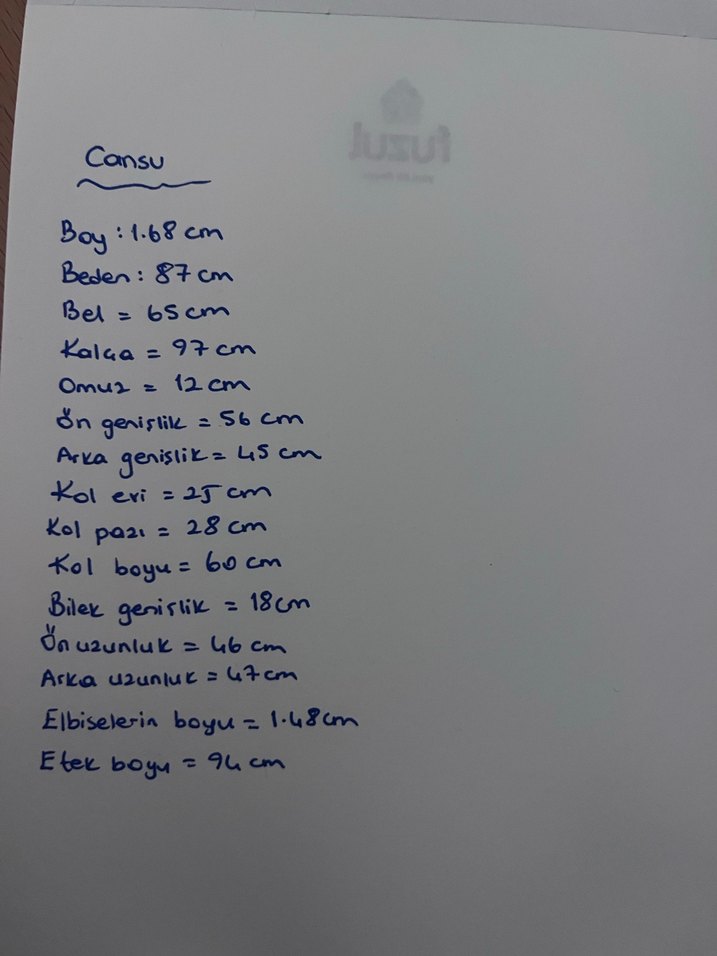 Cansu
Boy : 1.68 cm
Beden : 87 cm
Bel = 65 cm
Kalça = 97 cm
Omuz = 12 cm
Ön genişlik = 56 cm
Arka genişlik = 45 cm
Kol evi = 25 cm
Kol pazı = 28 cm
Kol boyu = 60 cm
Bilek genişlik = 18 cm
Ön uzunluk = 46 cm
Arka uzunluk = 47 cm
Elbiselerin boyu = 1.48 cm
Etek boyu = 94 cm
fuzul